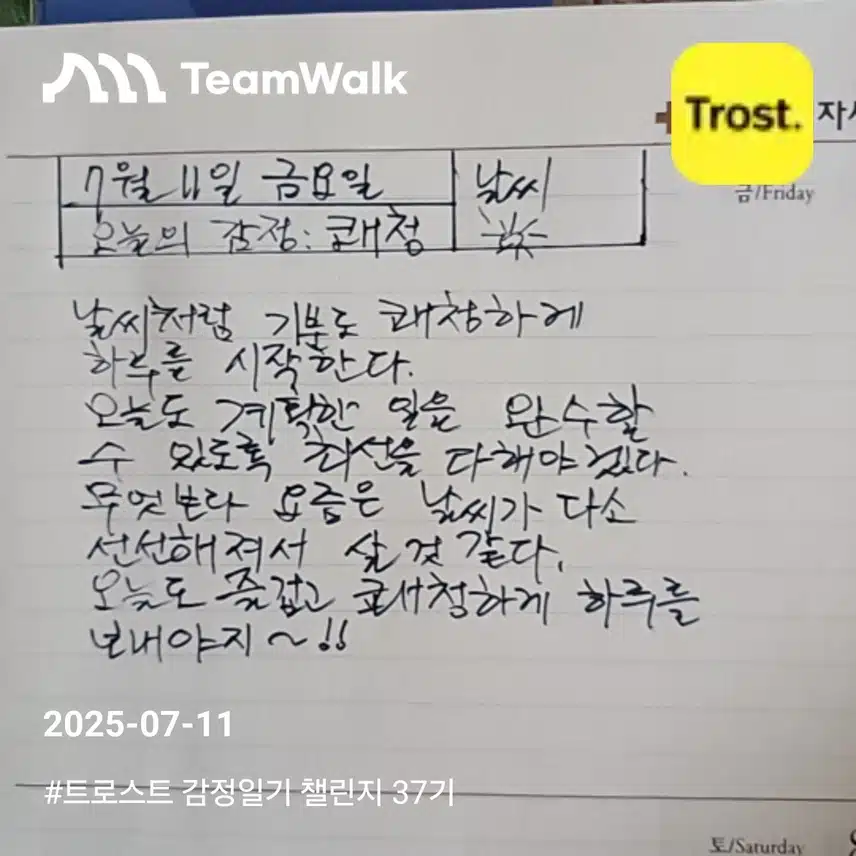 TeamWalk
Trost.
자
금/Friday
7월 11일 금요일
날씨
오늘의 감정: 쾌청
날씨처럼 기분도 쾌청하게
하루를 시작한다.
오늘도 계획한 일을 완수할
수 있도록 최선을 다해야겠다.
무엇보다 요즘은 날씨가 다소
선선해져서 살 것 같다.
오늘도 즐겁고 쾌청하게 하루를
보내야지~!!
2025-07-11
#트로스트 감정일기 챌린지 37기
토/Saturday